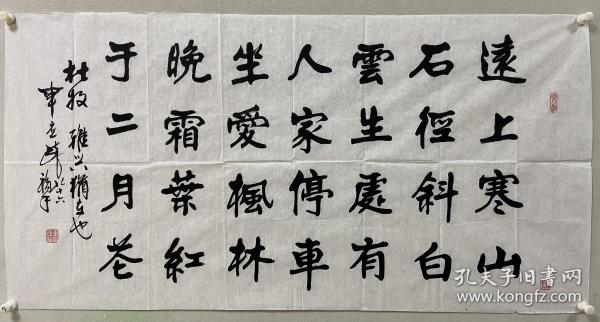 遠上寒山
石徑斜白
雲生處有
人家停車
坐愛楓林
晚霜葉紅
于二月花
杜牧 雅興猶在也
八十六
孔夫子旧书网
www.kongfz.com